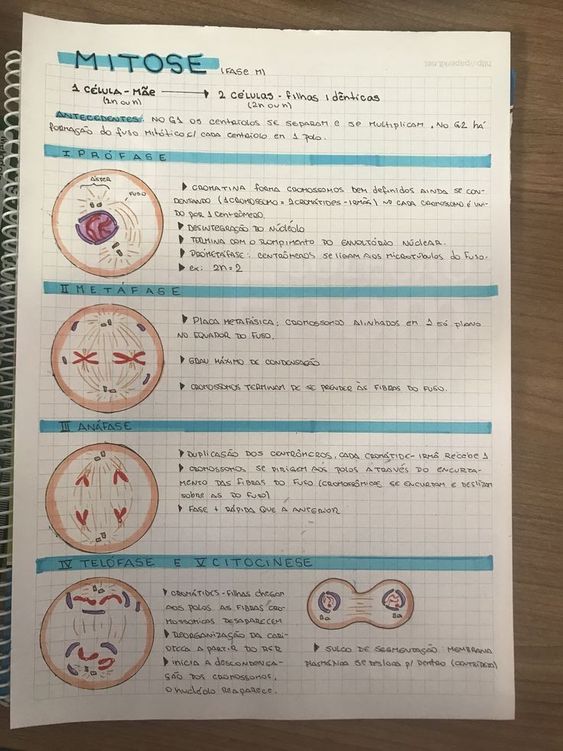 MITOSE (FASE M)
http://paperkit.net
1 CÉLULA-MÃE → 2 CÉLULAS-FILHAS IDÊNTICAS
(2n ou n) (2n ou n)
ANTECEDENTES: NO G1 OS CENTRÍOLOS SE SEPARAM E SE MULTIPLICAM. NO G2 HÁ
FORMAÇÃO DO FUSO MITÓTICO C/ CADA CENTRÍOLO EM 1 POLO.
I PRÓFASE
ÁSTER
FUSO
CROMATINA FORMA CROMOSSOMOS BEM DEFINIDOS AINDA SE CON-
DENSANDO (1 CROMOSSOMO = 2 CROMÁTIDES-IRMÃS) NO CADA CROMOSSOMO É UNI-
DO POR 1 CENTRÔMERO.
DESINTEGRAÇÃO DO NUCLÉOLO
TERMINA COM O ROMPIMENTO DO ENVOLTÓRIO NUCLEAR.
PROMETÁFASE: CENTRÔMEROS SE LIGAM AOS MICROTÚBULOS DO FUSO.
ex: 2n=2
II METÁFASE
PLACA METAFÁSICA: CROMOSSOMOS ALINHADOS EM 1 SÓ PLANO
NO EQUADOR DO FUSO.
GRAU MÁXIMO DE CONDENSAÇÃO
CROMOSSOMOS TERMINAM DE SE PRENDER ÀS FIBRAS DO FUSO.
III ANÁFASE
DUPLICAÇÃO DOS CENTRÔMEROS, CADA CROMÁTIDE-IRMÃ RECEBE 1
CROMOSSOMOS SE DIRIGEM AOS POLOS ATRAVÉS DO ENCURTA-
MENTO DAS FIBRAS DO FUSO (CROMOSSÔMICAS SE ENCURTAM E DESLIZAM
SOBRE AS DO FUSO)
FASE + RÁPIDA QUE A ANTERIOR
IV TELÓFASE E V CITOCINESE
CROMÁTIDES-FILHAS CHEGAM
AOS POLOS AS FIBRAS CRO-
MOSSÔMICAS DESAPARECEM
REORGANIZAÇÃO DA CARI-
OTECA A PARTIR DO RER
INICIA A DESCONDENSA-
ÇÃO DOS CROMOSSOMOS,
O NUCLÉOLO REAPARECE.
SULCO DE SEGMENTAÇÃO: MEMBRANA
PLASMÁTICA SE DESLOCA P/ DENTRO (CENTRÍPETA)